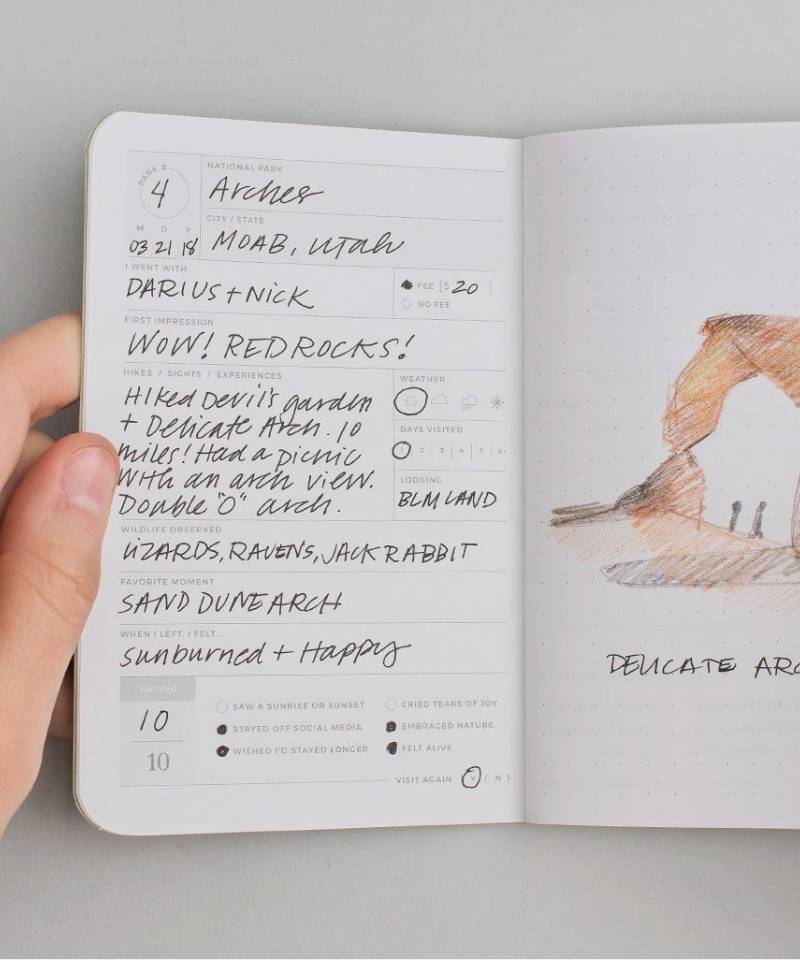 PARK #
4
NATIONAL PARK
Arches
M D Y
03 21 18
CITY / STATE
MOAB, UTah
I WENT WITH...
DARIUS + NICK
FEE [$ 20 ]
NO FEE
FIRST IMPRESSION
WOW! RED ROCKS!
HIKES / SIGHTS / EXPERIENCES
HIKed Devil's garden
+ Delicate Arch. 10
miles! Had a picnic
With an arch view.
Double "O" arch.
WEATHER
DAYS VISITED
1 2 3 4 5 6+
LODGING
BLM LAND
WILDLIFE OBSERVED
LIZARDS, RAVENS, JACK RABBIT
FAVORITE MOMENT
SAND DUNE ARCH
WHEN I LEFT, I FELT...
sunburned + Happy
RATING
10
10
SAW A SUNRISE OR SUNSET
CRIED TEARS OF JOY
STAYED OFF SOCIAL MEDIA
EMBRACED NATURE
WISHED I'D STAYED LONGER
FELT ALIVE
VISIT AGAIN [ Y / N ]
DELICATE ARC